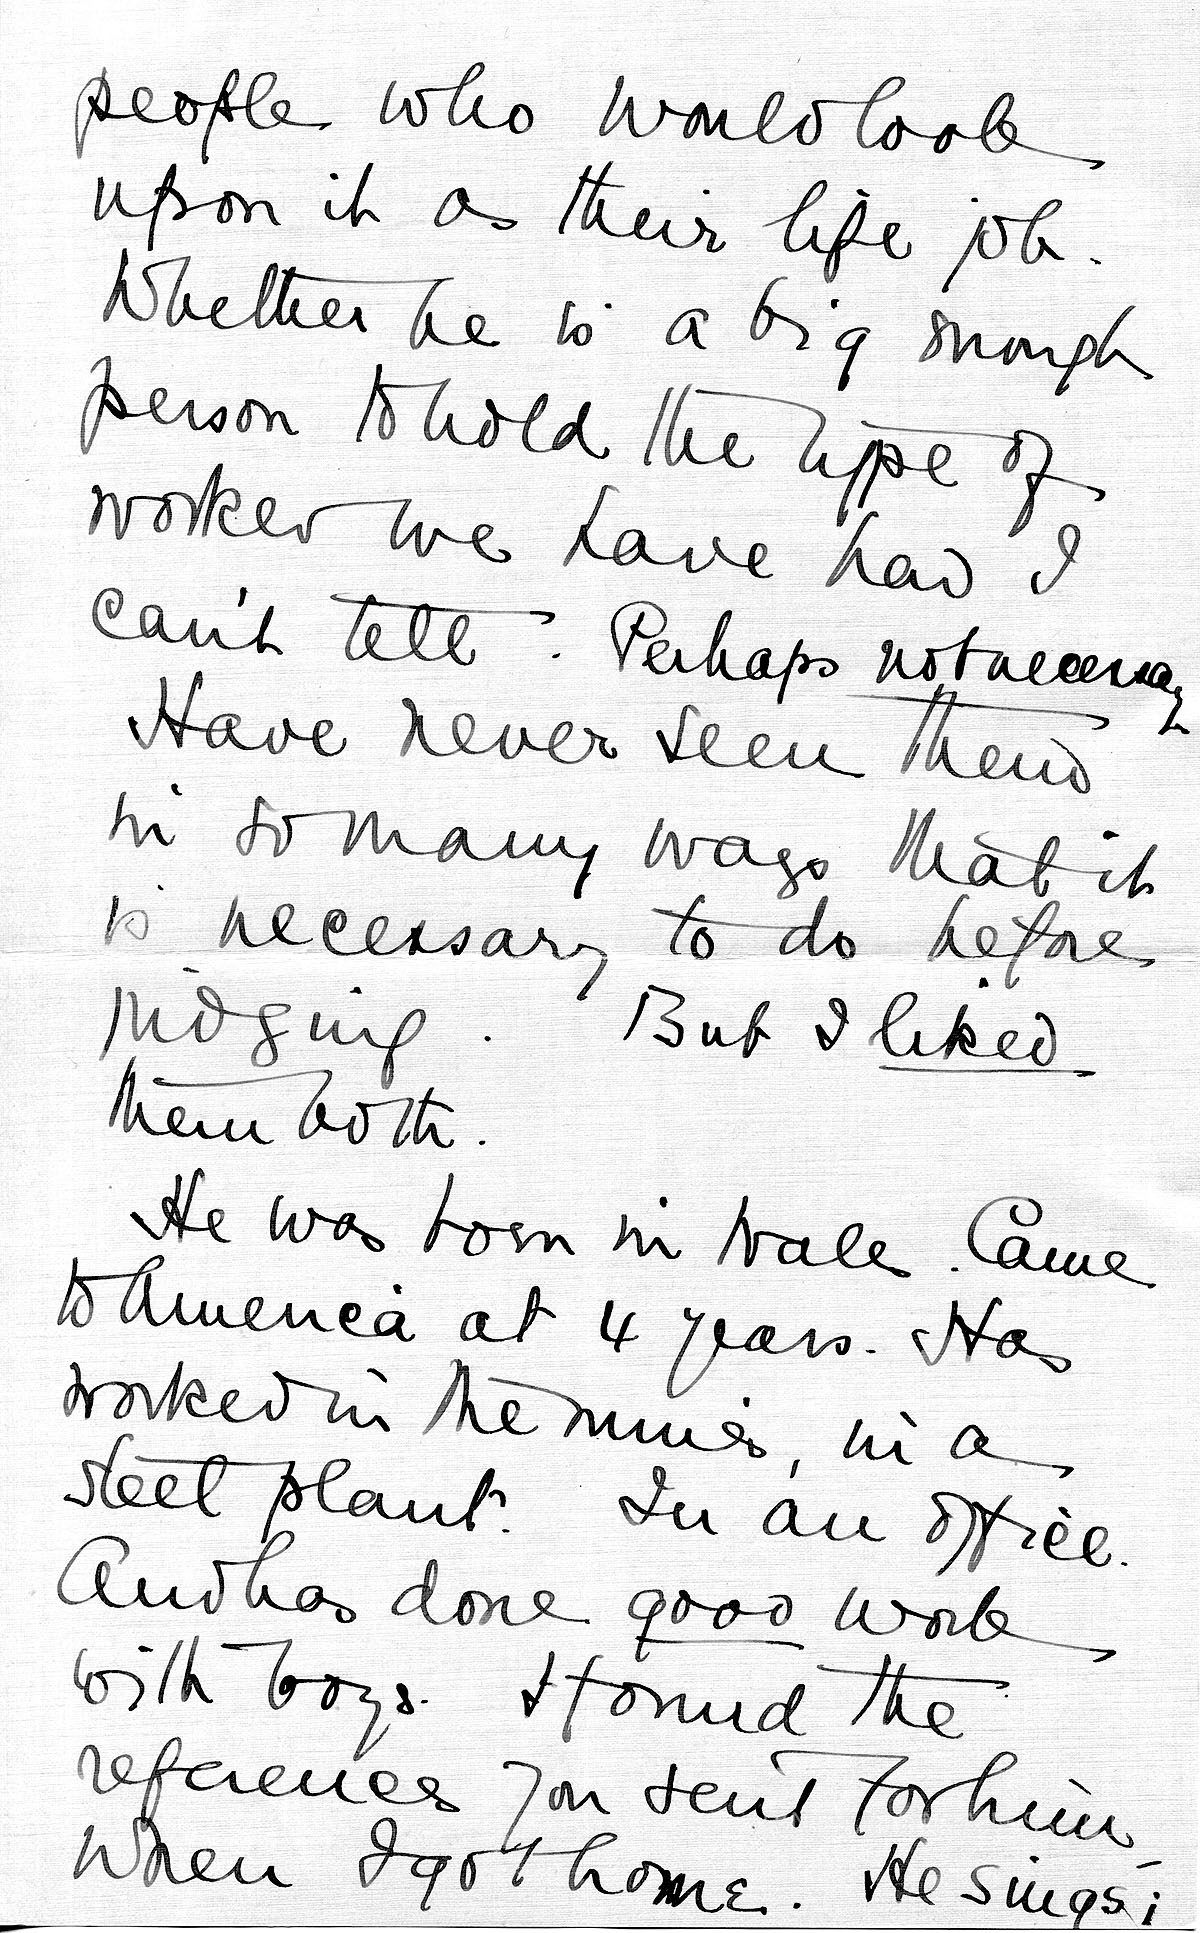 people who would look
upon it as their life job.
Whether he is a big enough
person to hold the type of
worker we have had I
can't tell. Perhaps not necessary
Have never seen them
in so many ways that it
is necessary to do before
judging. But I liked
them both.
He was born in Wales. Came
to America at 4 years. Has
worked in the mines, in a
steel plant. In an office.
And has done good work
with boys. I found the
references you sent for him
when I got home. He sings;